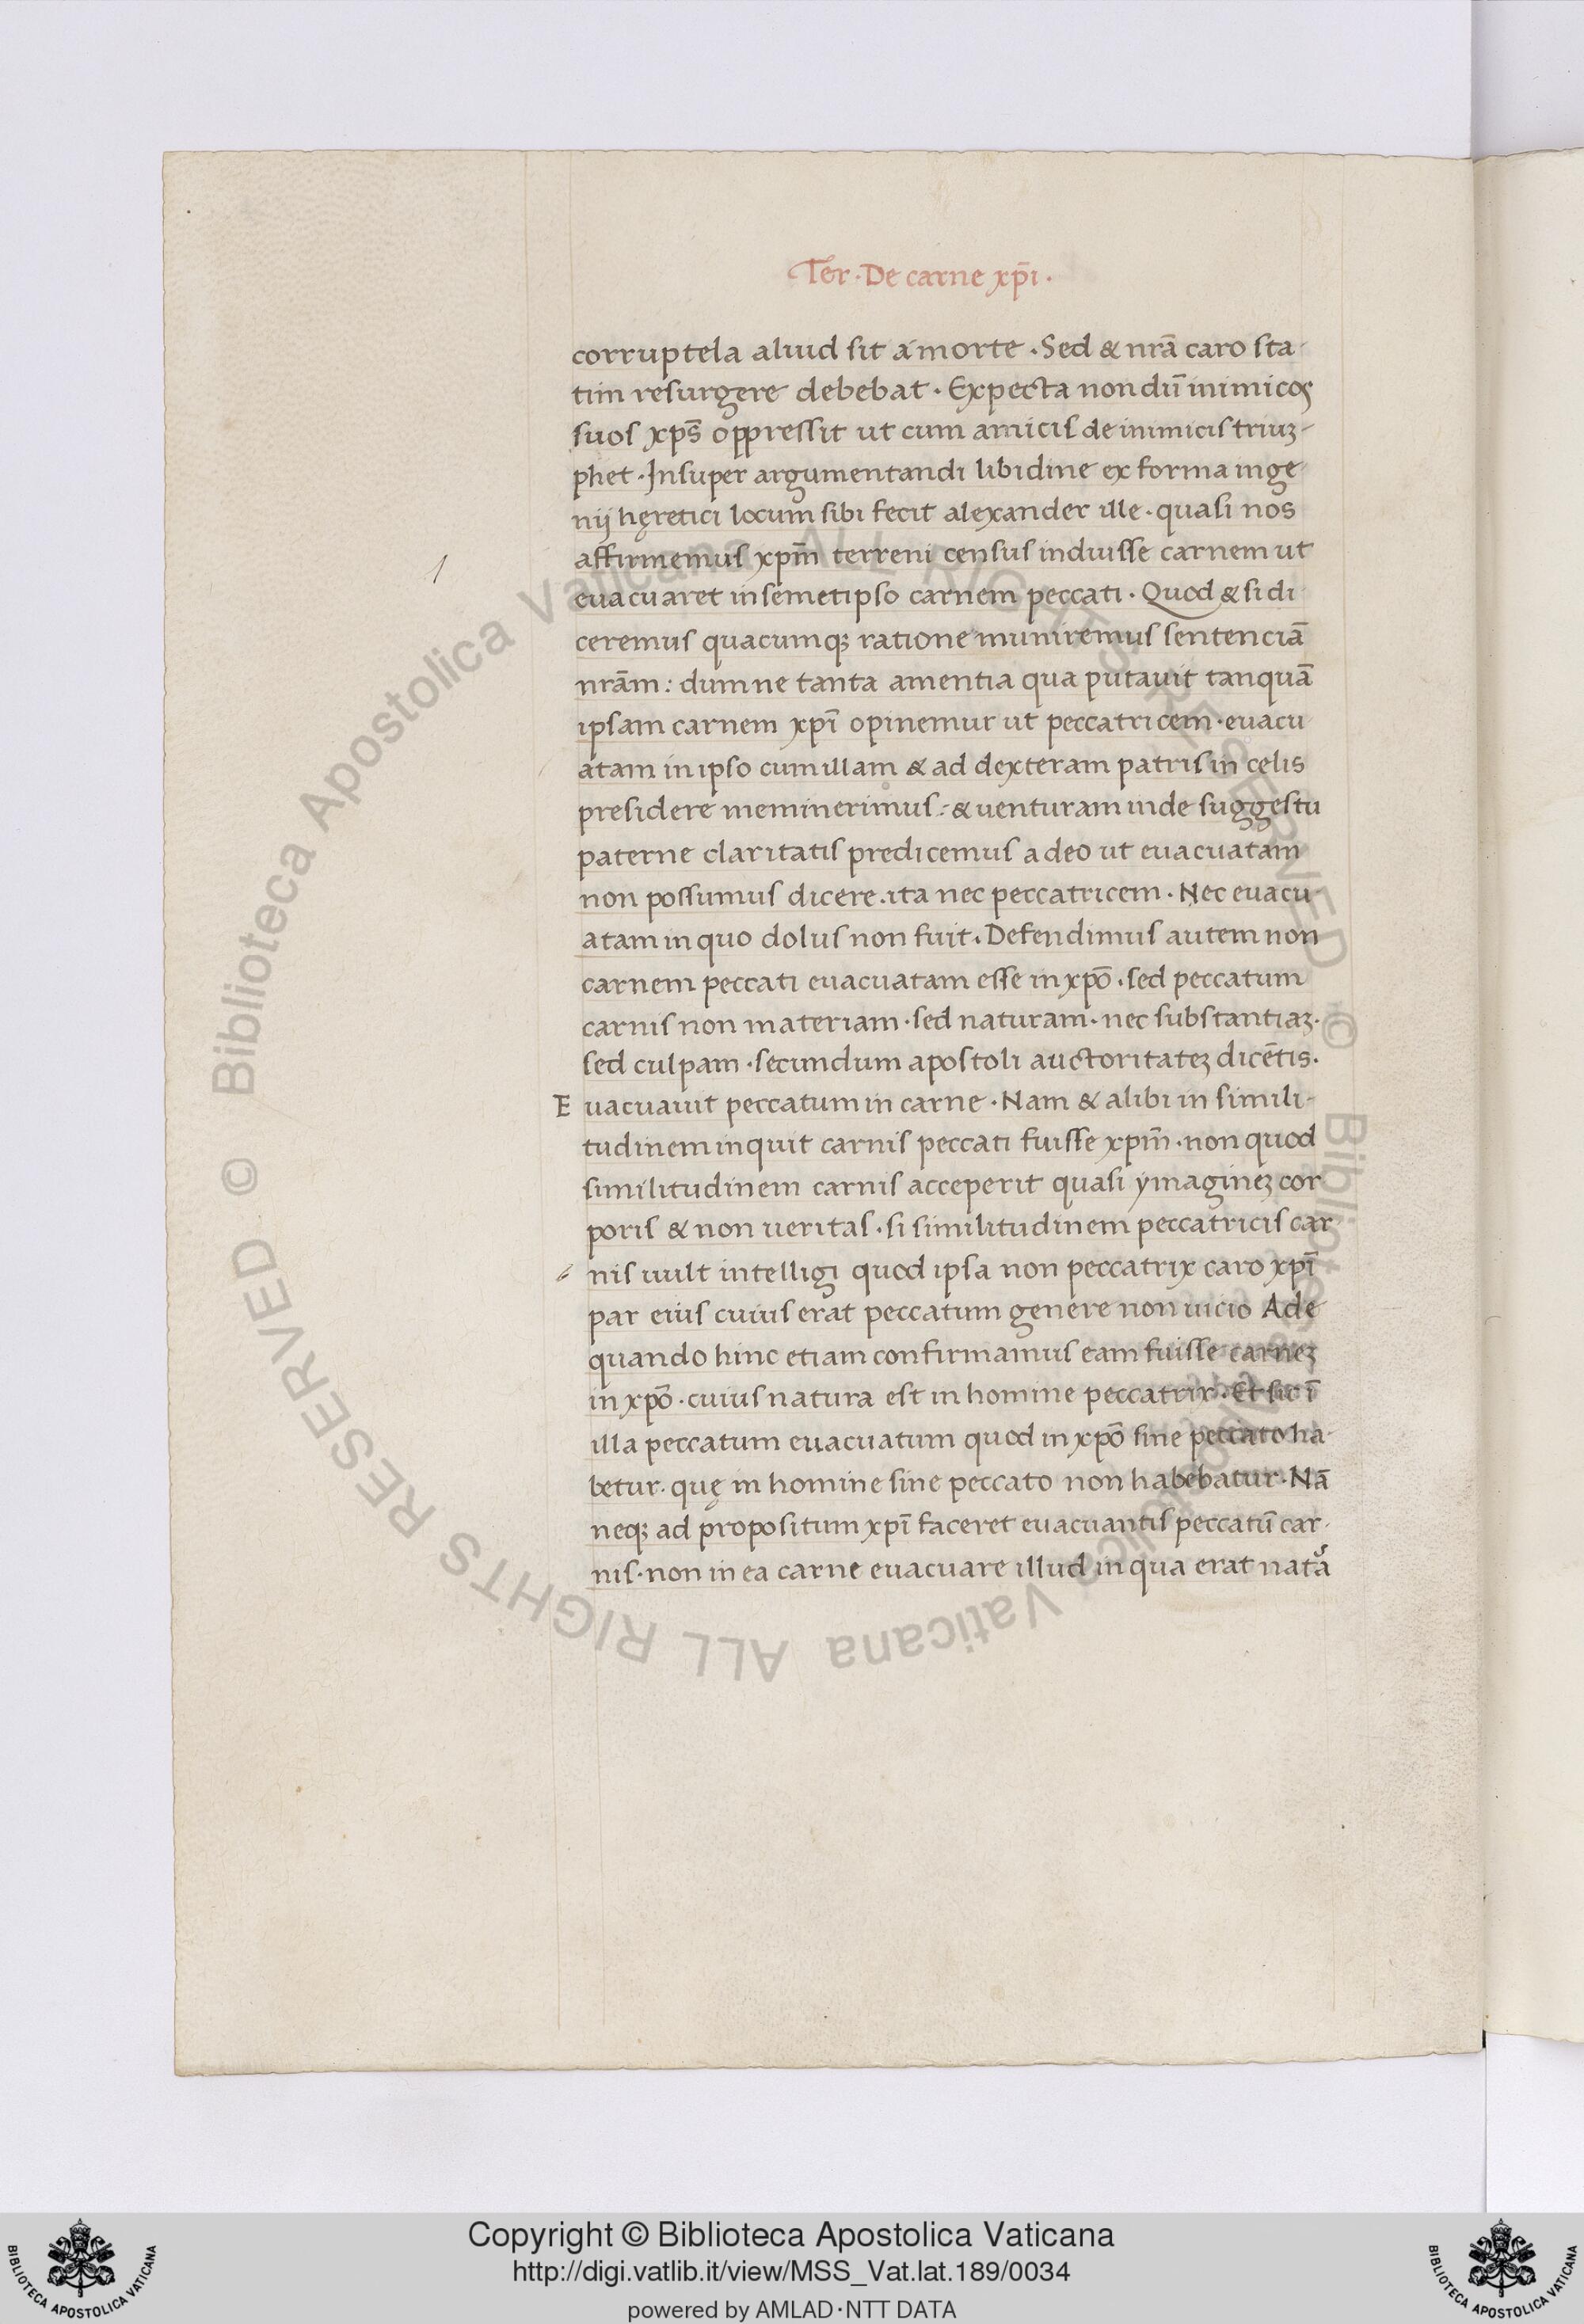 Ter · De carne xp̄i ·
corruptela aliud sit a morte · Sed & nr̄a caro sta-
tim resurgere debebat · Expecta nondū inimicos
suos xp̄s oppressit ut cum amicis de inimicis triuꝫ-
phet · Insuper argumentandi libidine ex forma inge-
nij hęretici locum sibi fecit alexander ille · quasi nos
affirmemus xp̄m terreni census induisse carnem ut
evacuaret in semetipso carnem peccati · Quod & si di-
ceremus quacumqꝫ ratione muniremus sentenciā
nr̄am : dum ne tanta amentia qua putavit tanquā
ipsam carnem xp̄i opinemur ut peccatricem · evacu-
atam in ipso cum illam & ad dexteram patris in celis
presidere meminerimus : & venturam inde suggestu
paterne claritatis predicemus adeo ut evacuatam
non possumus dicere . ita nec peccatricem · Nec evacu-
atam in quo dolus non fuit . Defendimus autem non
carnem peccati evacuatam esse in xp̄o . sed peccatum
carnis non materiam · sed naturam · nec substantiaꝫ ·
sed culpam · secundum apostoli auctoritateꝫ dicētis ·
Evacuavit peccatum in carne · Nam & alibi in simili-
tudinem inquit carnis peccati fuisse xp̄m · non quod
similitudinem carnis acceperit quasi ymagineꝫ cor-
poris & non veritas · si similitudinem peccatricis car-
nis vult intelligi quod ipsa non peccatrix caro xp̄i
par eius cuius erat peccatum genere non vicio Ade
quando hinc etiam confirmamus eam fuisse carneꝫ
in xp̄o · cuius natura est in homine peccatrix · Et sic ī
illa peccatum evacuatum quod in xp̄o sine peccato ha-
betur · quę in homine sine peccato non habebatur · Nā
neqꝫ ad propositum xp̄i faceret evacuantis peccatū car-
nis · non in ea carne evacuare illud in qua erat natᷣa
© Biblioteca Apostolica Vaticana ALL RIGHTS RESERVED © Biblioteca Apostolica Vaticana ALL RIGHTS RESERVED
Copyright © Biblioteca Apostolica Vaticana
http://digi.vatlib.it/view/MSS_Vat.lat.189/0034
powered by AMLAD·NTT DATA
BIBLIOTECA APOSTOLICA VATICANA
BIBLIOTECA APOSTOLICA VATICANA